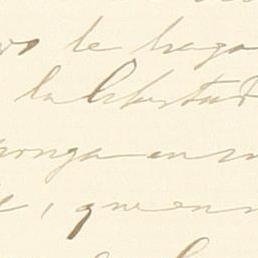 le haga
la libertad
ponga en m
, que en